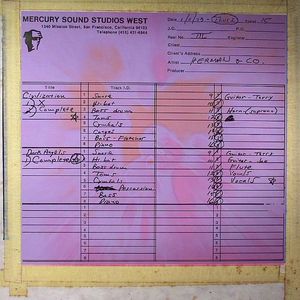 MERCURY SOUND STUDIOS WEST
1340 Mission Street, San Francisco, California 94103
Telephone (415)
Date
J.O.
P.O.
Reel No. III
Eng.
Client
Client's Address
Artist HERMAN & CO.
Producer
Track I.D.
Civilization 1 Snare 9 Guitar - Terry
1) X 2 Hi hat 10
2) Complete 3 Bass drum 11 Horn (soprano)
4 Toms 12
5 Cymbals 13
6 14
7 Bass - Fletcher 15
8 Piano 16
Dark Angels 1 Snare 9 Guitar Terry
1) Complete 2 Hi hat 10 Guitar
3 Bass drum 11 Flute
4 Toms 12 Vocals
5 Cymbals 13 Vocals
6 Percussion 14
7 Bass 15
8 Piano 16